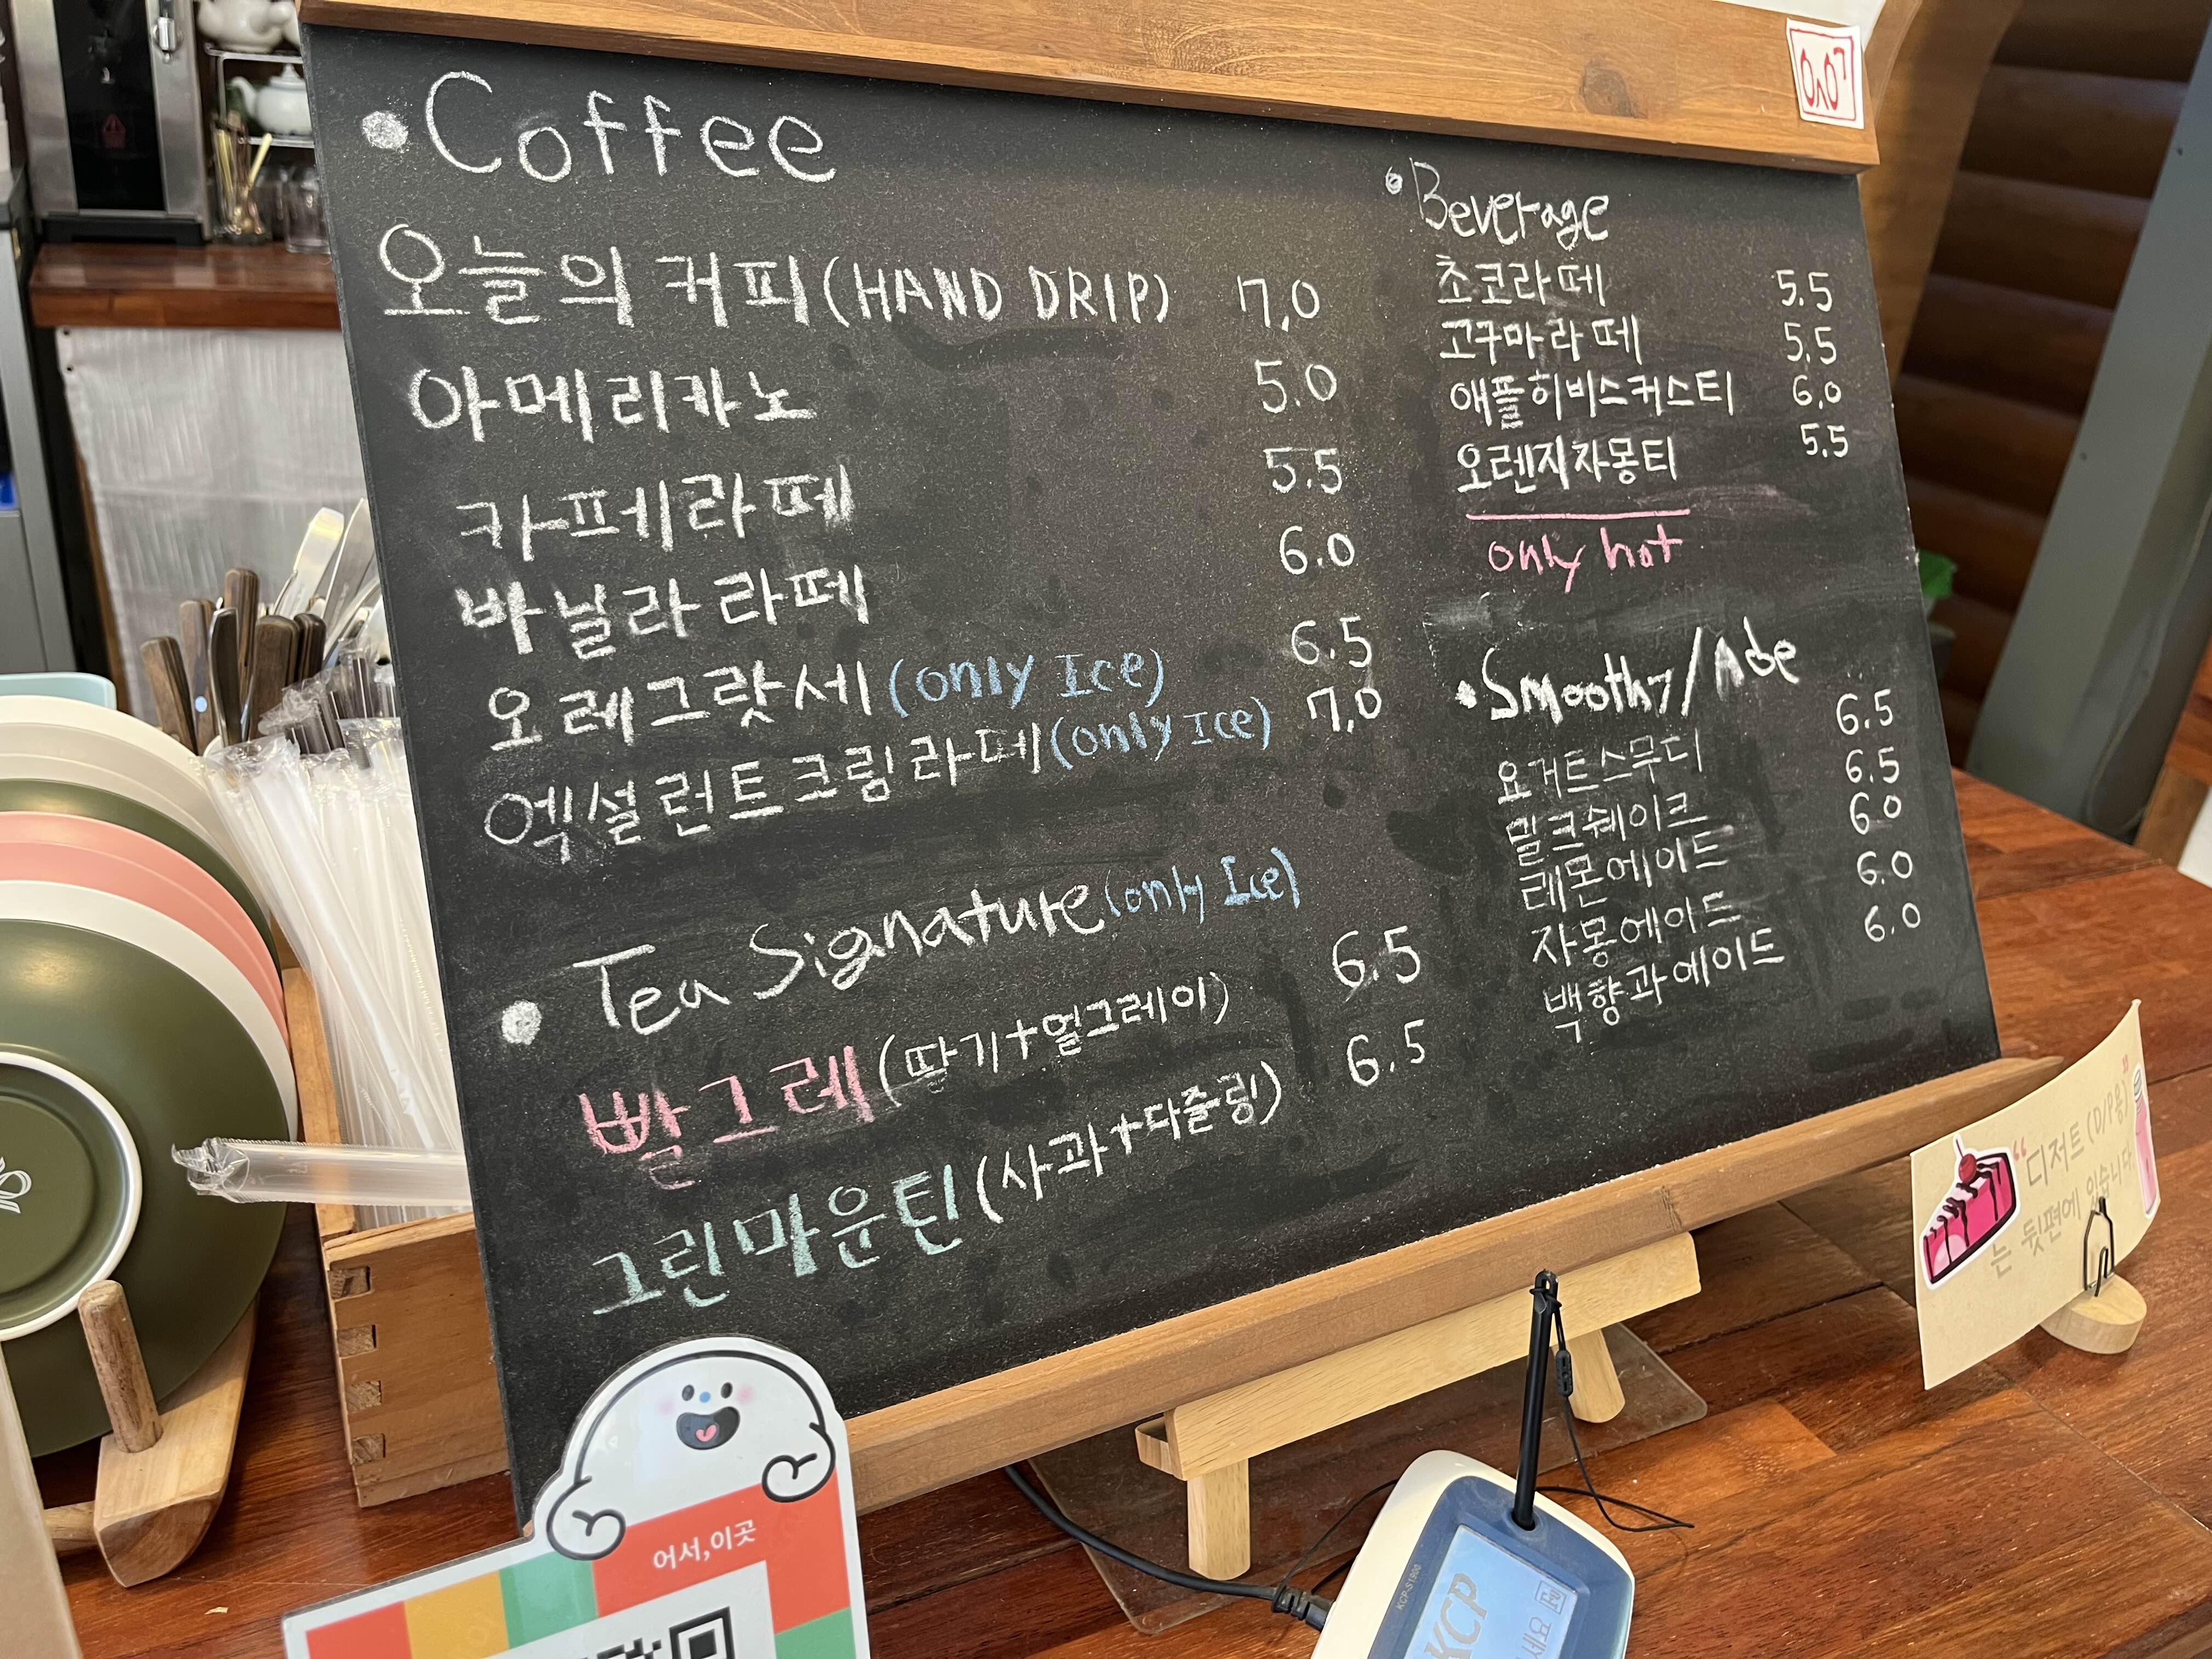 • Coffee
오늘의 커피 (HAND DRIP) 7,0
아메리카노 5.0
카페라떼 5.5
바닐라 라떼 6.0
오레그랏세 (only Ice) 6.5
엑설런트크림라떼 (only Ice) 7,0
• Tea Signature (only Ice)
빨그레 (딸기+얼그레이) 6.5
그린마운틴 (사과+다즐링) 6.5
• Beverage
초코라떼 5.5
고구마라떼 5.5
애플히비스커스티 6.0
오렌지자몽티 5.5
only hot
• Smoothy/Ade
요거트스무디 6.5
밀크쉐이크 6.5
레몬에이드 6.0
자몽에이드 6.0
백향과에이드 6.0
"디저트 (D/P용)
는 뒷편에 있습니다.
어서,이곳
KCP
KCP-S1900